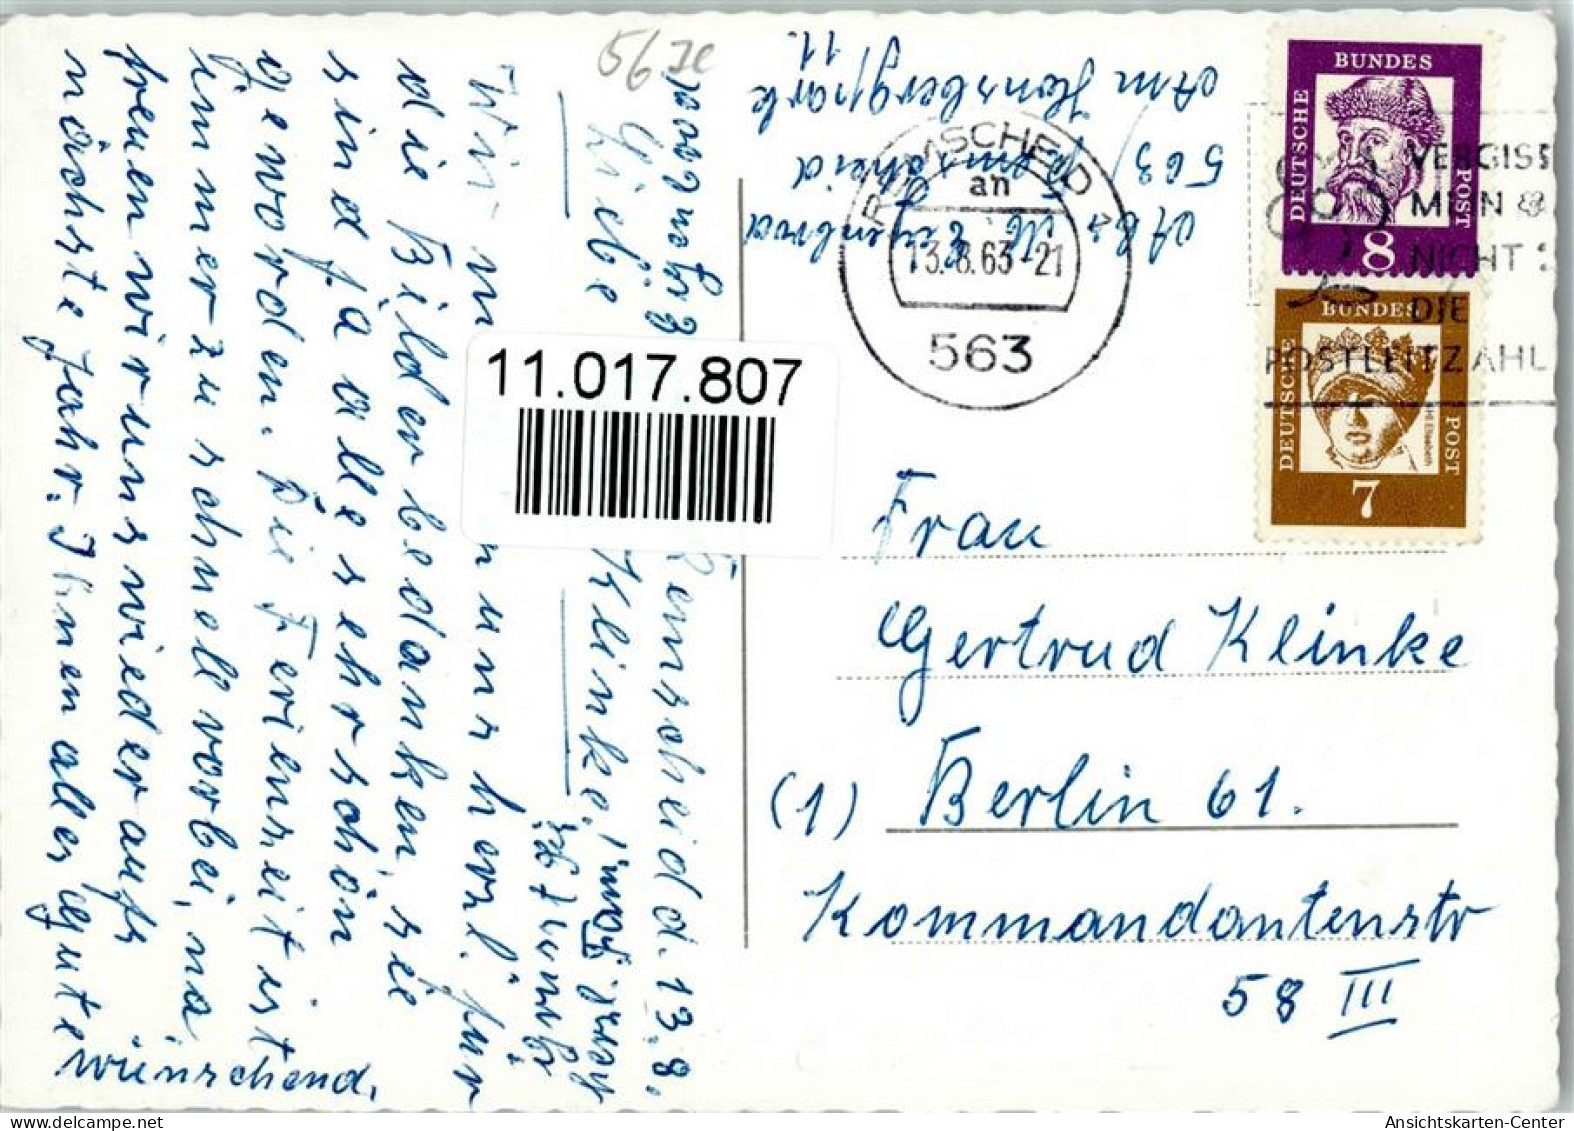 56 je
Remscheid d. 13.8.
Liebe Klinke,
Wir m
n uns herzl. für
die Bilder bedanken, sie
sind ja alle sehr schön
geworden. Die Ferienzeit ist
immer zu schnell vorbei, na
freuen wir uns wieder aufs
nächste Jahr. Ihnen alles Gute
wünschend.
Abs.
563) Remscheid
Am Honsbergpark
11.
REMSCHEID
an
13.8.63-21
563
VERGISS
MEIN
NICHT
DIE
POSTLEITZAHL
BUNDES
DEUTSCHE
POST
8
BUNDES
DEUTSCHE
POST
Hl Elisabeth
7
11.017.807
Frau
Gertrud Klinke
(1) Berlin 61.
Kommandantenstr
58 III
Ansichtskarten-Center